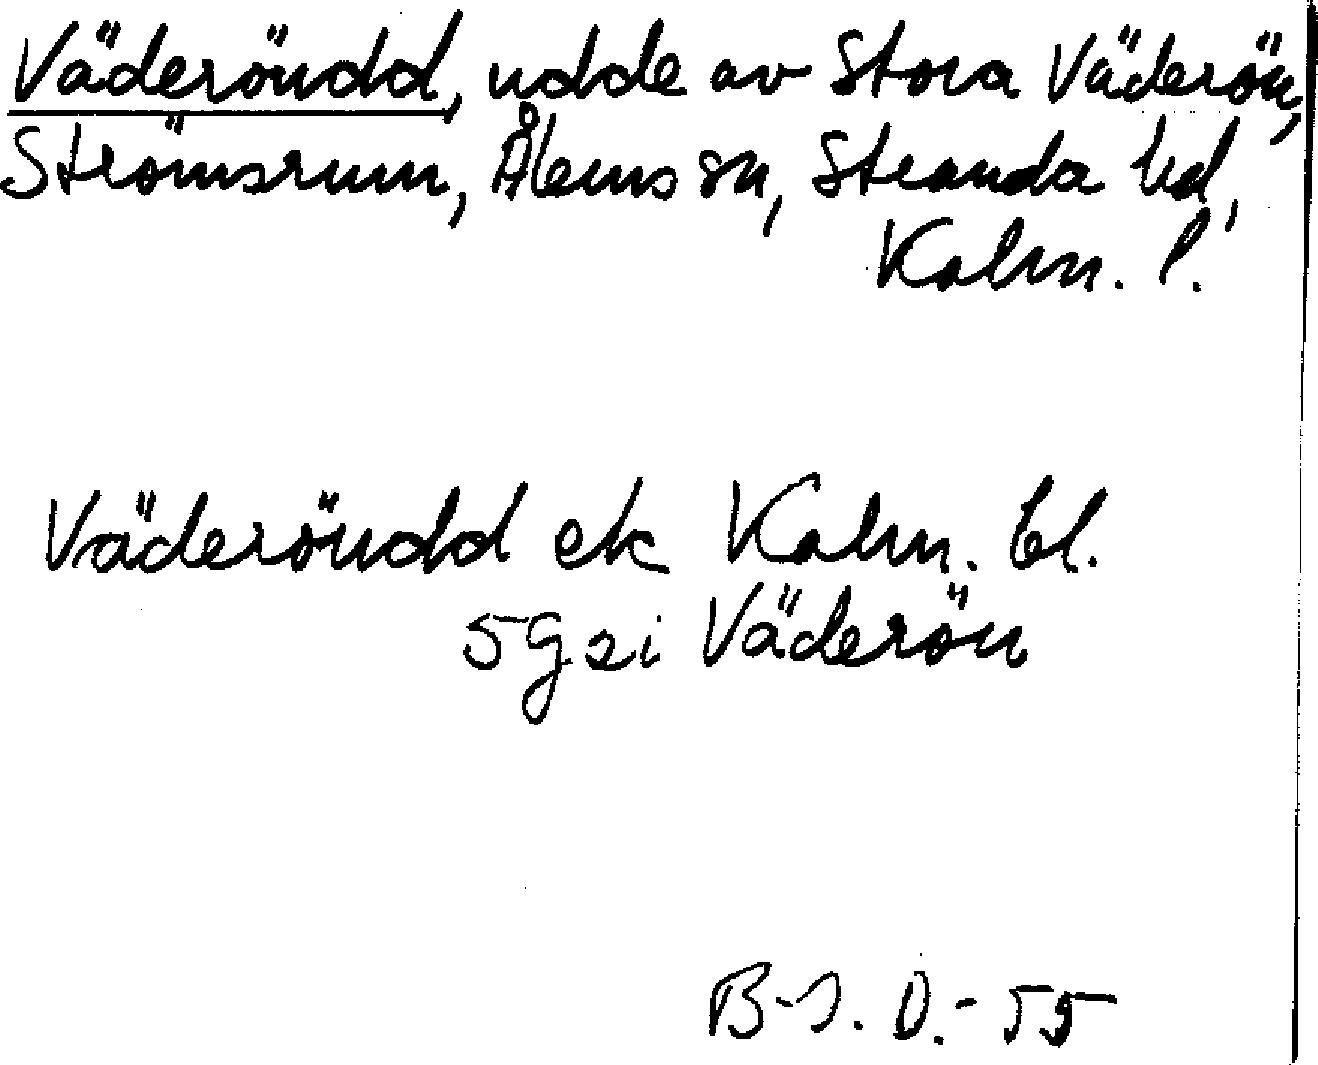 Väderöudd, udde av Stora Väderön,
Strömsrum, Ålems sn, Stranda hd,
Kalm. l.
Väderöudd ek Kalm. bl.
5g2i Väderön
B-J. O.- 55